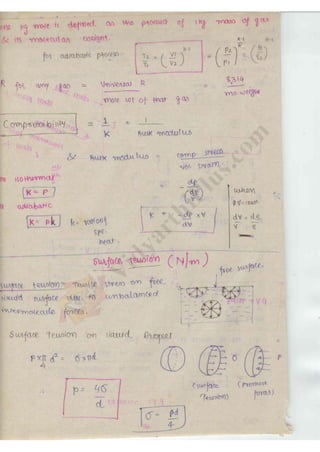 one kg mole is defined as the product of 1 kg mass of gas
& its molecular weight.
for adiabatic process T2/T1 = (V1/V2)^(γ-1) = (P2/P1)^(γ-1/γ)
R for any gas = Universal R / mole wt of that gas = 8.314 / mo weight
Compressibility = 1/K = 1 / Bulk modulus
& Bulk modulus = comp stress / vol strain
isothermal = dp
K = P when
adiabatic
K = Pk k = ratio of spe. heat. K = - dp/dv × V
Surface Tension (N/m)
free surface.
Surface tension = Tensile stress on free
liquid surface due to unbalanced
intermolecule forces.
Surface Tension on liquid Droplet
P × π/4 d² = σ × πd
(surface Tension) (pressure force)
P = 4σ/d
σ = Pd/4